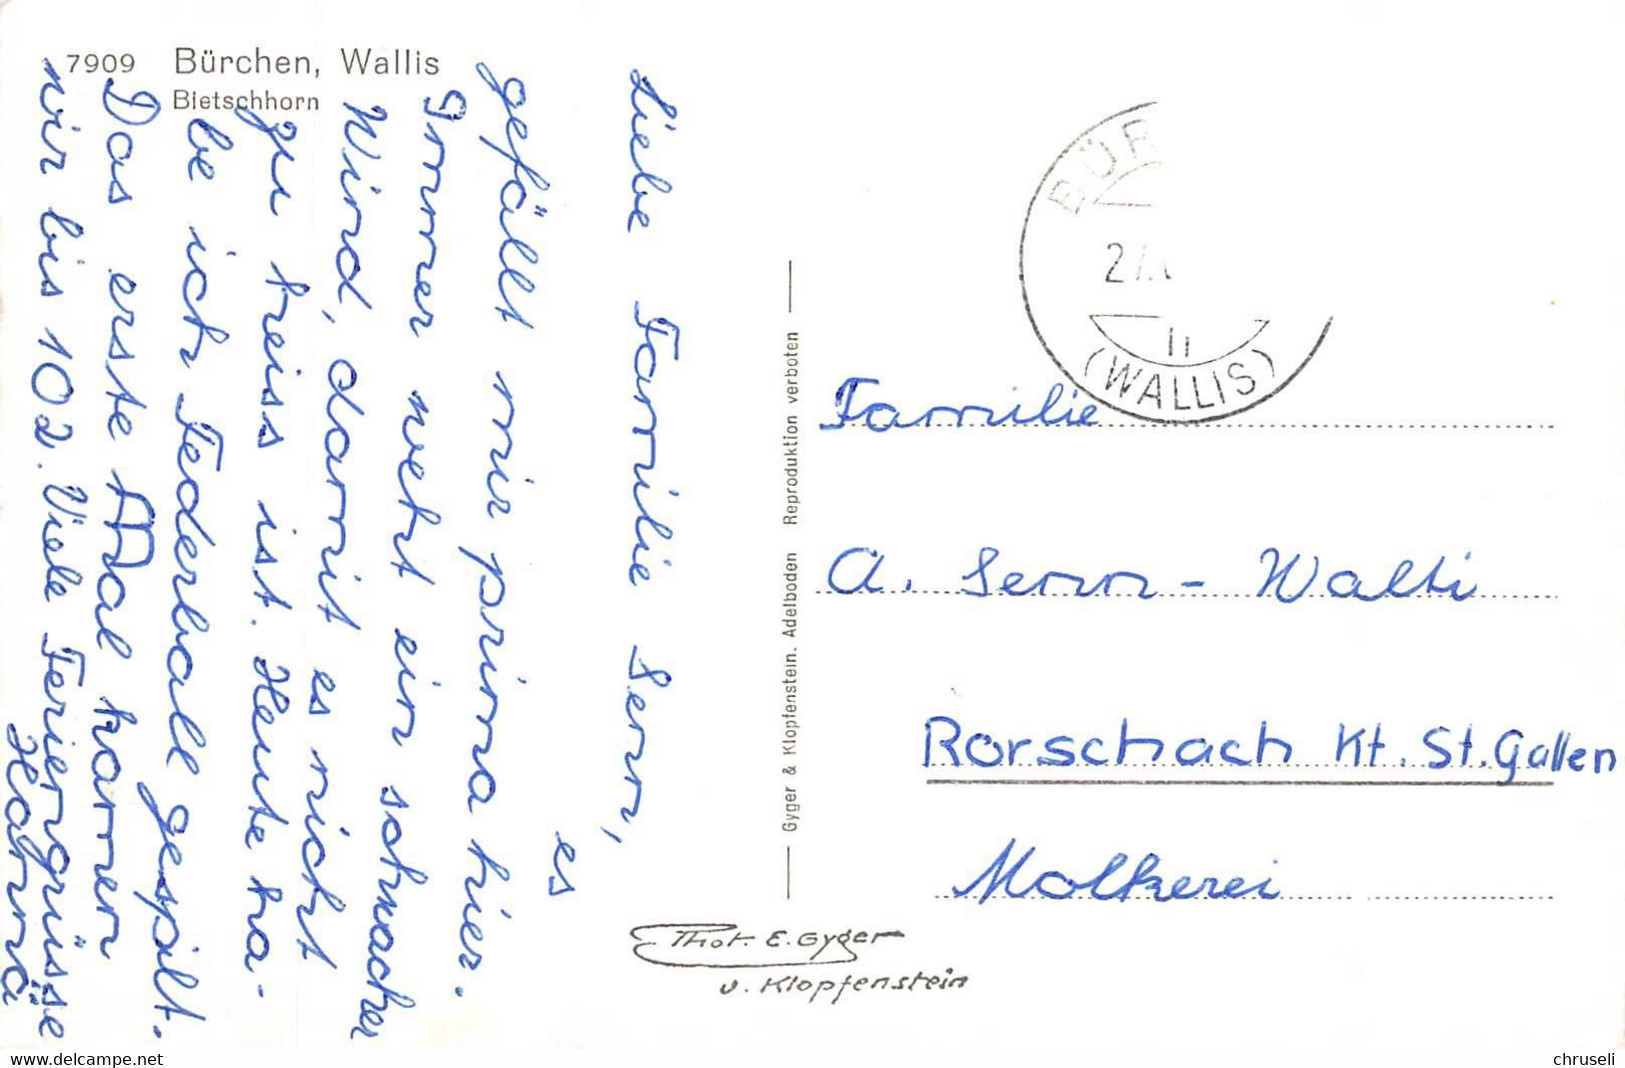 7909 Bürchen, Wallis
Bietschhorn
Liebe Familie Senn,
es
gefällt mir prima hier.
Immer weht ein schwacher
Wind, damit es nicht
zu heiss ist. Heute ha-
be ich Federball gespilt.
Das erste Mal kamen
wir bis 102. Viele Feriengrüsse
Gyger & Klopfenstein. Adelboden Reproduktion verboten
Phot. E. Gyger
u. Klopfenstein
BÜR
(WALLIS)
Familie
A. Senn - Walti
Rorschach Kt. St. Gallen
Molkerei
chruseli